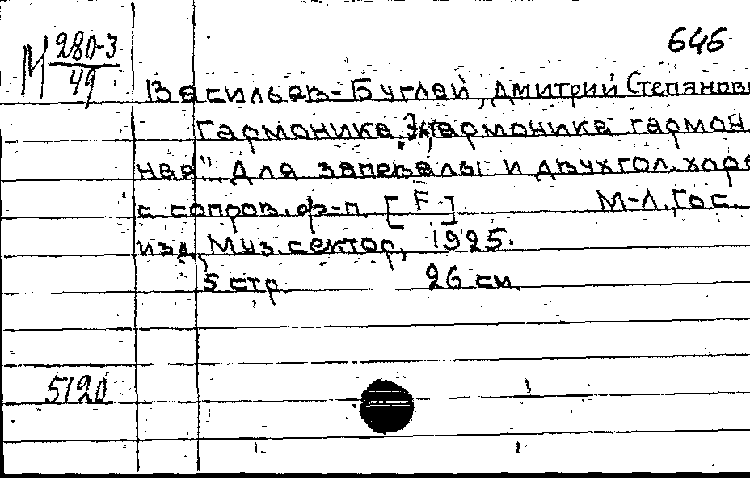 646
М 280-3
49
Васильев-Буглай, Дмитрий Степанов
Гармоника. "Эх, гармоника гармон
ная". Для запевалы и двухгол. хора
с сопров. ф-п. [F] М-Л, Гос.
изд, Муз. сектор, 1925.
5 стр. 26 см.
5120